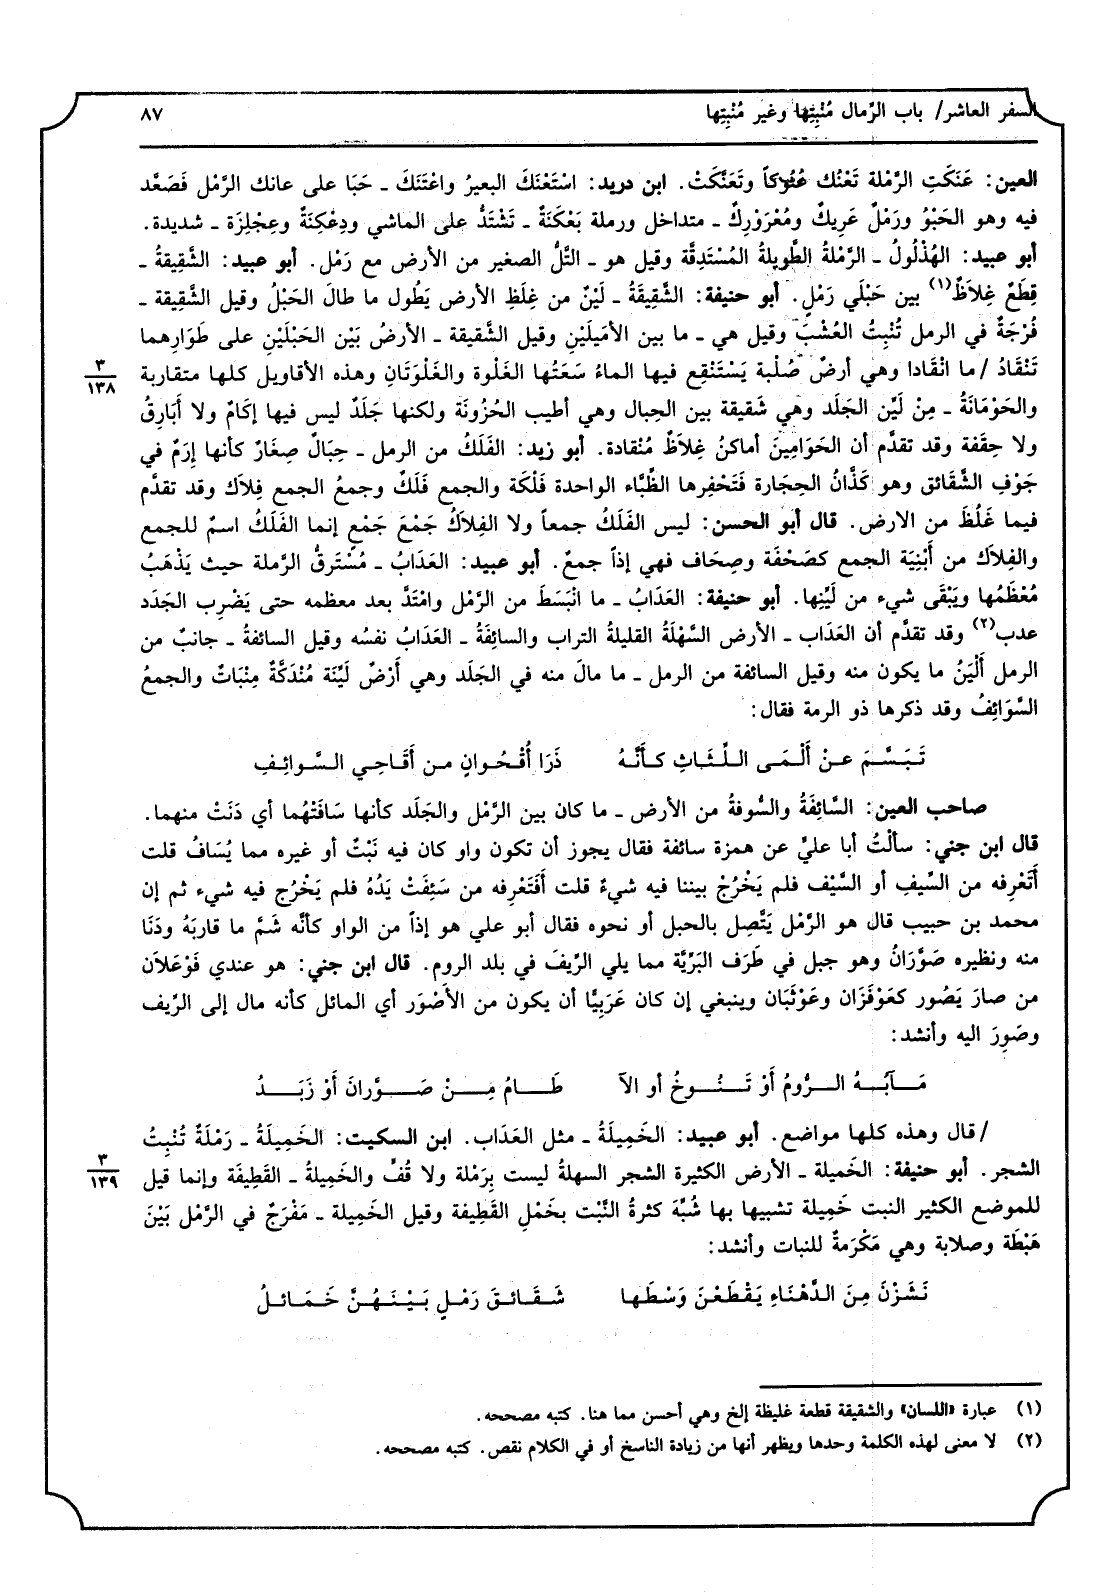 السفر العاشر/ باب الرِّمال مُنْبِتِها وغير مُنْبِتِها
٨٧
العين: عَنَكَتِ الرَّمْلة تَعْنُك عُنُوكاً وتَعَنَّكَتْ. ابن دريد: اسْتَعْنَكَ البعيرُ واعْتَنَكَ ـ حَبَا على عانك الرَّمْل فَصَعَّد
فيه وهو الحَبْوُ ورَمْلٌ عَرِيكٌ ومُعْرَوْرِكٌ ـ متداخل ورملة بَعْكَنَةٌ ـ تَشْتَدُّ على الماشي ودِعْكِنَةٌ وعِجْلِزَة ـ شديدة.
أبو عبيد: الهُذْلُولُ ـ الرَّمْلةُ الطَّوِيلةُ المُسْتَدِقَّة وقيل هو ـ التَّلُّ الصغير من الأرض مع رَمْل. أبو عبيد: الشَّقِيقةُ ـ
قِطَعٌ غِلاَظٌ(١) بين حَبْلَي رَمْلٍ. أبو حنيفة: الشَّقِيقَةُ ـ لَيْنٌ من غِلَظِ الأرض يَطُول ما طالَ الحَبْلُ وقيل الشَّقِيقة ـ
فُرْجَةٌ في الرمل تُنْبِتُ العُشْبَ وقيل هي ـ ما بين الأَمِيلَيْنِ وقيل الشَّقيقة ـ الأرضُ بَيْن الحَبْلَيْنِ على طَوَارِهما
تَنْقَادُ /ما انْقَادا وهي أرضٌ صُلْبة يَسْتَنْقِع فيها الماءُ سَعَتُها الغَلْوة والغَلْوَتَانِ وهذه الأقاويل كلها متقاربة
٣
١٣٨
والحَوْمَانَةُ ـ مِنْ لَيِّن الجَلَد وهي شَقيقة بين الحِبال وهي أطيب الحُزُونَة ولكنها جَلَدٌ ليس فيها إكَامٌ ولا أَبَارِقُ
ولا حِقَفة وقد تقدَّم أن الحَوَامِينَ أماكنُ غِلاَظٌ مُنْقادة. أبو زيد: الفَلَكُ من الرمل ـ حِبَالٌ صِغَارٌ كأنها إرَمٌ في
جَوْفِ الشَّقائق وهو كَذَّانُ الحِجَارة فَتَحْفِرها الظِّبَاء الواحدة فَلْكَة والجمع فَلَكٌ وجمعُ الجمع فِلاَك وقد تقدَّم
فيما غَلُظَ من الارض. قال أبو الحسن: ليس الفَلَكُ جمعاً ولا الفِلاَكُ جَمْعَ جَمْعٍ إنما الفَلَكُ اسمٌ للجمع
والفِلاَك من أَبْنِيَة الجمع كصَحْفَة وصِحَاف فهي إذاً جمعٌ. أبو عبيد: العَدَابُ ـ مُسْتَرقُّ الرَّملة حيث يَذْهَبُ
مُعْظَمُها ويَبْقَى شيء من لَيِّنِها. أبو حنيفة: العَدَابُ ـ ما انْبَسَطَ من الرَّمْل وامْتَدَّ بعد معظمه حتى يَضْرِب الجَدَد
عدب(٢) وقد تقدَّم أن العَدَاب ـ الأرض السَّهْلَةُ القليلةُ التراب والسائِفَةُ ـ العَدَابُ نفسُه وقيل السائفةُ ـ جانبٌ من
الرمل أَلْيَنُ ما يكون منه وقيل السائفة من الرمل ـ ما مالَ منه في الجَلَد وهي أَرْضٌ لَيِّنَة مُنْدَكَّةٌ مِنْبَاتٌ والجمعُ
السَّوَائِفُ وقد ذكرها ذو الرمة فقال:
تَبَسَّمَ عَنْ أَلْمَى اللِّثَاثِ كأنَّهُ ذَرَا أُقْحُوانٍ من أَقَاحِي السوائِفِ
صاحب العين: السَّائِفَةُ والسُّوفةُ من الأرض ـ ما كان بين الرَّمْل والجَلَد كأنها سَافَتْهُما أي دَنَتْ منهما.
قال ابن جني: سألْتُ أبا عليٍّ عن همزة سائفة فقال يجوز أن تكون واو كان فيه نَبْتٌ أو غيره مما يُسَافُ قلت
أَتَعْرِفه من السِّيفِ أو السَّيْف فلم يَخْرُجْ بيننا فيه شيءٌ قلت أَفَتَعْرِفه من سَئِفَتْ يَدُهُ فلم يَخْرُج فيه شيء ثم إن
محمد بن حبيب قال هو الرَّمْل يَتَّصِل بالحبل أو نحوه فقال أبو علي هو إذاً من الواو كأنَّه شَمَّ ما قاربَهُ ودَنَا
منه ونظيره صَوَّرَانُ وهو جبل في طَرَف البَرِّيَّة مما يلي الرِّيفَ في بلد الروم. قال ابن جني: هو عندي فَوْعَلاَن
من صارَ يَصُور كعَوْفَزَان وعَوْثَبَان وينبغي إن كان عَرَبِيًّا أن يكون من الأَصْوَر أي المائل كأنه مال إلى الرِّيف
وصَوِرَ اليه وأنشد:
مَـآبُـهُ الـرُّومُ أَوْ تَـنُـوخُ أو الآ طَـامُ مِـنْ صَـوَّرانَ أَوْ زَبَـدُ
/قال وهذه كلها مواضع. أبو عبيد: الخَمِيلَةُ ـ مثل العَدَاب. ابن السكيت: الخَمِيلَةُ ـ رَمْلَةٌ تُنْبِتُ
٣
١٣٩
الشجر. أبو حنيفة: الخَميلة ـ الأرض الكثيرة الشجر السهلةُ ليست بِرَملة ولا قُفٍّ والخَمِيلةُ ـ القَطِيفَة وإنما قيل
للموضع الكثير النبت خَميلة تشبيها بها شُبِّهَ كثرةُ النَّبْت بخَمْلِ القَطِيفة وقيل الخَمِيلة ـ مَفْرَجٌ في الرَّمْل بَيْنَ
هَبْطَة وصلابة وهي مَكْرَمةٌ للنبات وأنشد:
نَشَزْنَ مِنَ الدَّهْنَاءِ يَقْطَعْنَ وَسْطَها شَـقَـائـقَ رَمْلٍ بَيْـنَـهُـنَّ خَمَـائـلُ
(١) عبارة «اللسان» والشقيقة قطعة غليظة إلخ وهي أحسن مما هنا. كتبه مصححه.
(٢) لا معنى لهذه الكلمة وحدها ويظهر أنها من زيادة الناسخ أو في الكلام نقص. كتبه مصححه.